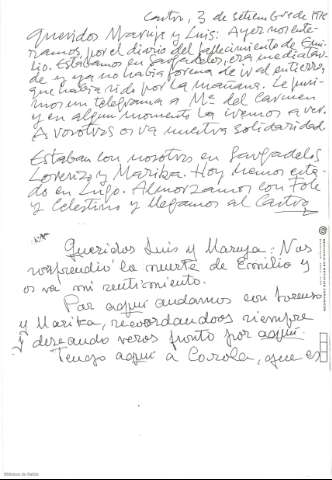 Castro, 3 de setiembre de 19
Queridos Maruja y Luis: Ayer nos ente-
ramos, por el diario del fallecimiento de Emi-
lio. Estábamos en Sargadelos, era mediatar-
de y ya no había forma de ir al entierro,
que había sido por la mañana. Le pusi-
mos un telegrama a Mª del Carmen
y en algún momento la iremos a ver.
A vosotros os va nuestra solidaridad.
Estaban con nosotros en Sargadelos
Lorenzo y Marika. Hoy hemos esta-
do en Lugo. Almorzamos con Fole
y Celestino y llegamos al Castro
Queridos Luis y Maruja: Nos
sorprendió la muerte de Emilio y
os va mi sentimiento.
Por aquí andamos con Lorenzo
y Marika, recordándoos siempre
y deseando veros pronto por aquí.
Tengo aquí a Corola, que es
Biblioteca de Galicia